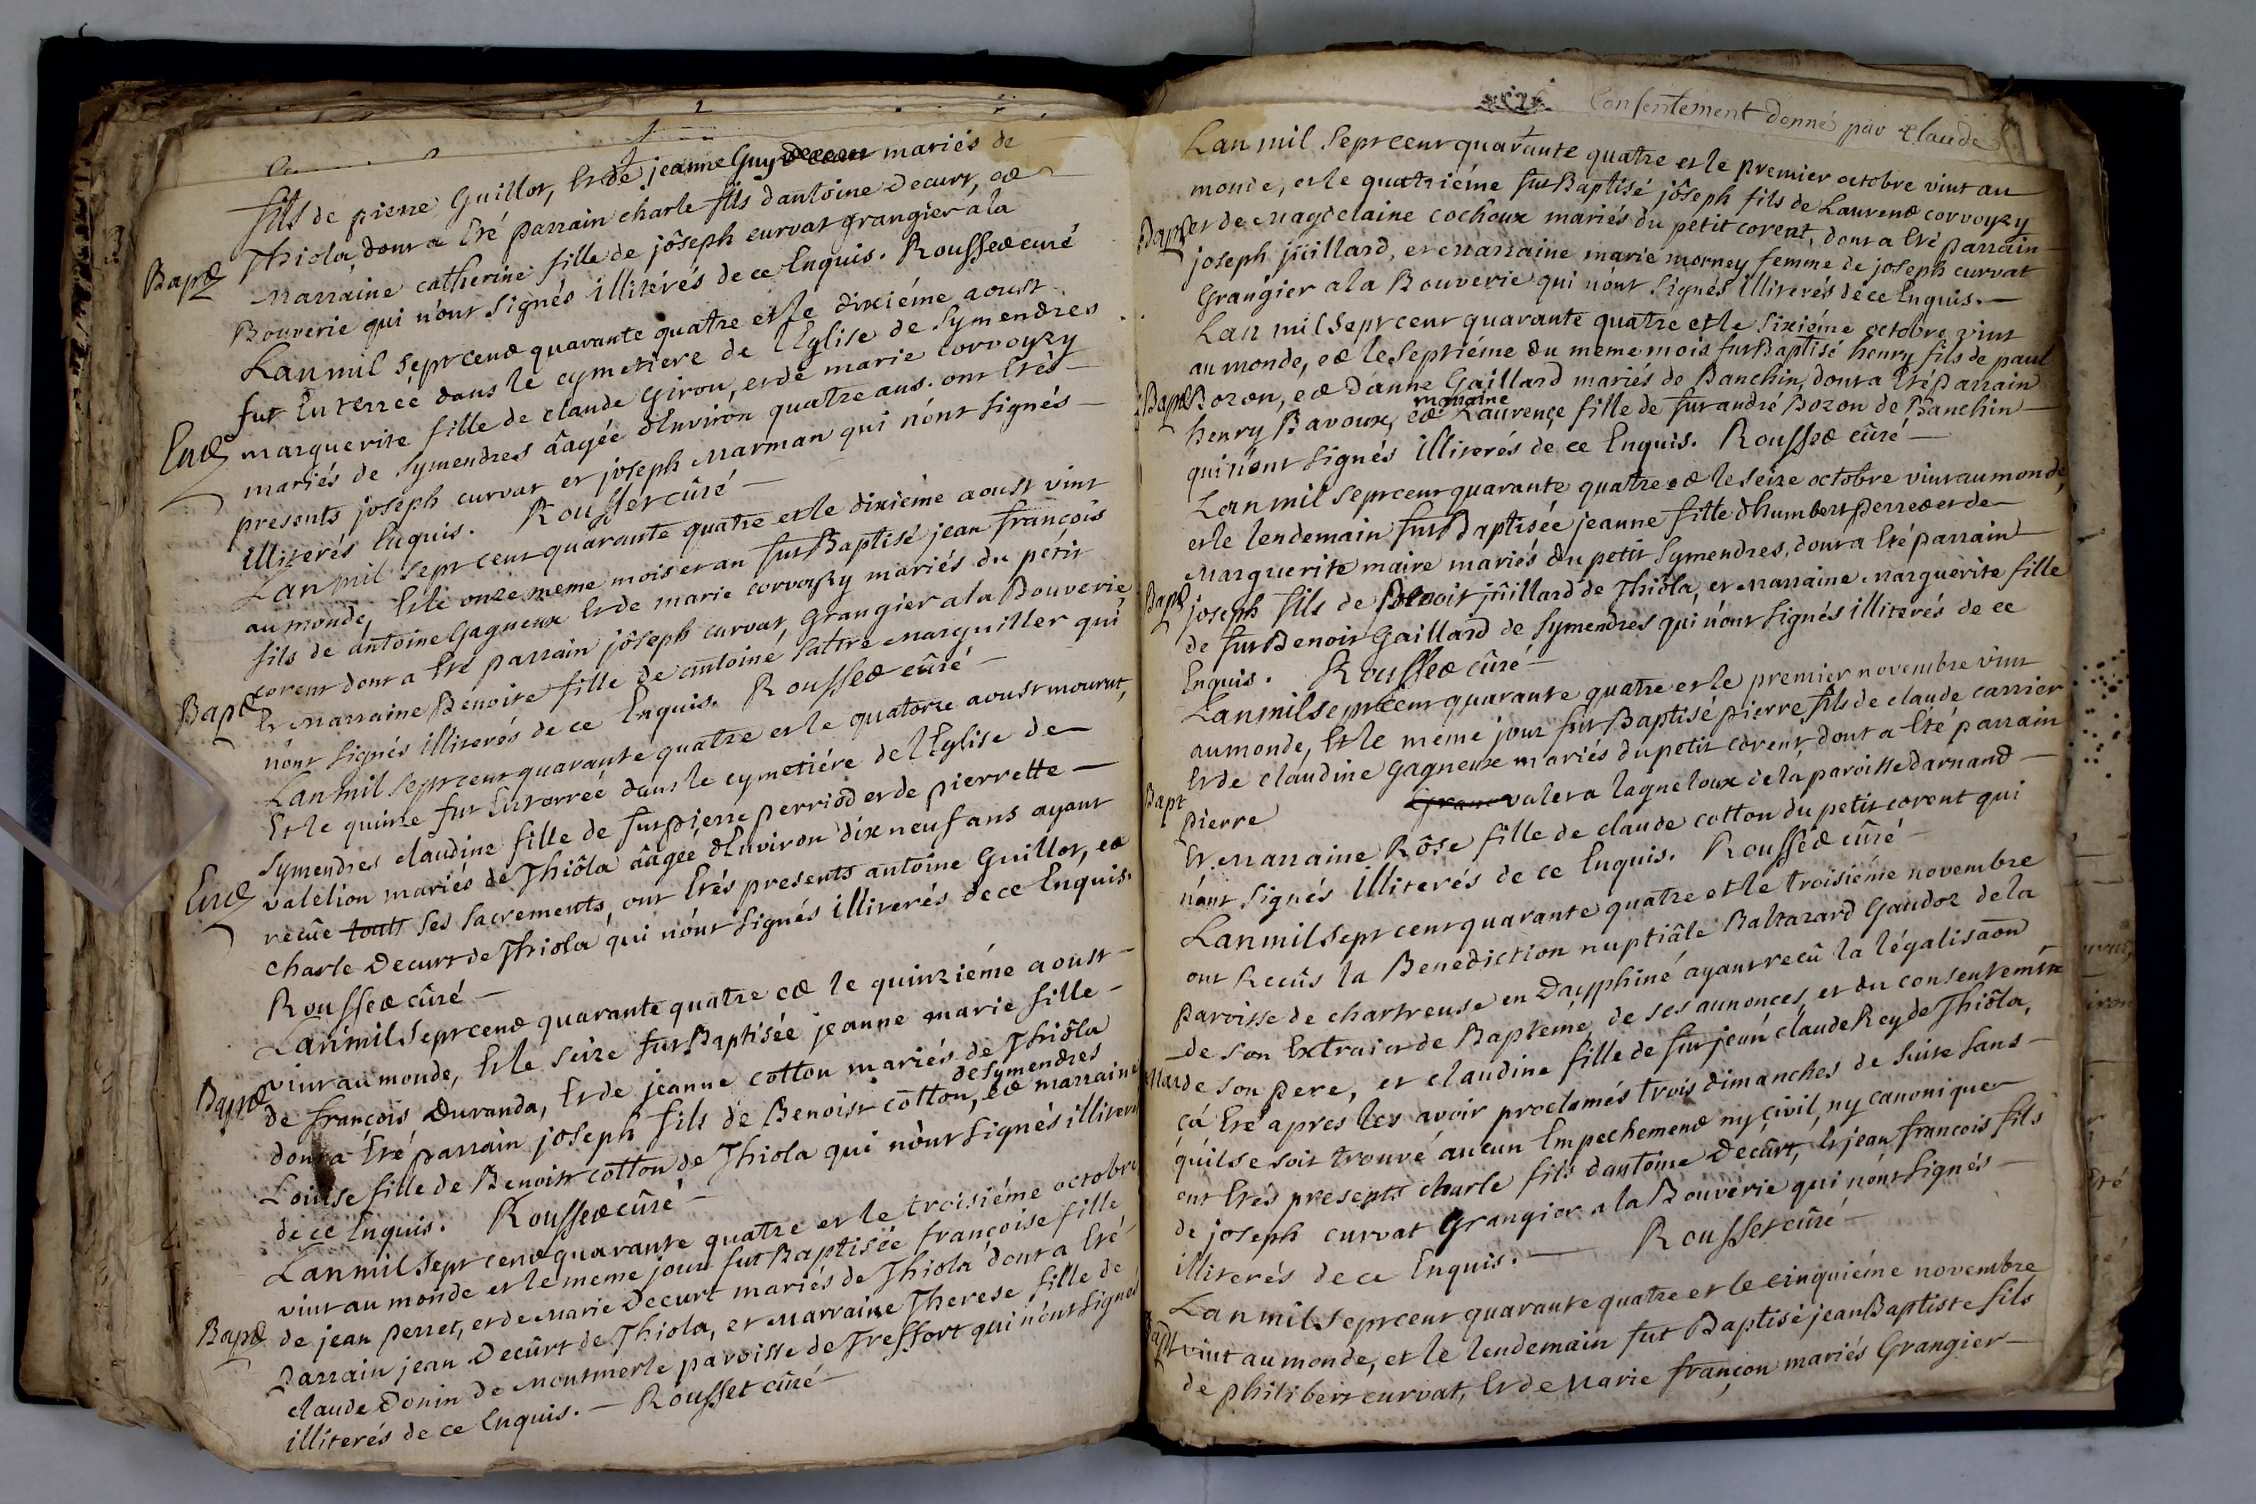 fils de pierre Guillot, Et de jeanne Guy mariés de
Thiola, dont a Eté parrain charle fils dantoine decurt, et
Bapt
Marraine catherine fille de jôseph curvat grangier a la
Bouverie qui n'ont signés illiterés de ce Enquis. Rousset curé
Lan mil sept cent quarante quatre et le dixiéme aoust
fut Enterreé dans le cymetiere de lEglise de Symendres
Ent
marguerite fille de claude Girou, et de marie corvoyzy
mariés de Symendres âagée dEnviron quatre ans. ont Etés
presents joseph curvat et joseph Marman qui n'ont signés
illiterés Enquis. Rousset cûré
Lan mil sept cent quarante quatre et le dixiéme aoust vint
au monde, Et le onze meme mois et an fut Baptisé jean françois
fils de antoine Gagneux Et de marie corvoyzy mariés du petit
corent dont a Eté parrain jôseph curvat, Grangier a la Bouverie
Bapt
Et Marraine Benoite fille de antoine Sattre Marguiller qui
n'ont signés illiterés de ce Enquis. Rousset cûré
Lan mil sept cent quarante quatre et le quatorze aoust mourut,
Et le quinze fut Enterreé dans le cymetiére de lEglise de
Symendres claudine fille de fut pierre perriod et de pierrette
Ent
valélion mariés de Thiôla âagée dEnviron dix neuf ans ayant
recûe tout ses sacrements, ont Etés presents antoine Guillot, et
charle Decurt de Thiola qui n'ont signés illiterés de ce Enquis.
Rousset cûré
Lan mil sept cent quarante quatre et le quinziéme aoust
vint au monde, Et le seize fut Baptisée jeanne marie fille
Bapt
de françois Duranda, Et de jeanne cotton mariés de Thiôla
de symendres
dont a Eté parrain joseph fils de Benoist cotton, et marraine
Loüise fille de Benoist cotton de Thiola qui n'ont signés illiterés
de ce Enquis. Rousset cûré
Lan mil sept cent quarante quatre et le troisiéme octobre
vint au monde et le meme jour fut Baptisée françoise fille
de jean perret, et de Marie Decurt mariés de Thiola dont a Eté
Bapt
parrain jean Decûrt de Thiola, et Marraine Therese fille de
claude Donin de Montmerle paroisse de Treffort qui n'ont signés
illiterés de ce Enquis. Rousset cûré
Consentement donné par claude
Lan mil sept cent quarante quatre et le premier octobre vint au
monde, et le quatriéme fut Baptisé jôseph fils de Laurent corvoyzy
Bapt
et de Magdelaine cochoux mariés du petit corent, dont a Eté parrain
joseph jüillard, et Marraine marie morney femme de joseph curvat
Grangier a la Bouverie qui n'ont signés illiterés de ce Enquis.
Lan mil sept cent quarante quatre et le Sixiéme octobre vint
au monde, et le Septiéme du meme mois fut Baptisé henry fils de paul
Bapt
Bozon, et d'anne Gaillard mariés de Banchin, dont a Eté parrain
marraine
henry Bavoux, et Laurençe fille de fut andré Bozon de Banchin
qui n'ont signés illiterés de ce Enquis. Rousset cûré
Lan mil sept cent quarante quatre et le seize octobre vint au monde,
et le lendemain fut Baptisée jeanne fille dhumbert perret et de
Marguerite maire mariés du petit Symendres, dont a Eté parrain
Bapt
joseph fils de Benoit jüillard de Thiôla, et Marraine Marguerite fille
de fut Benoit Gaillard de Symendres qui n'ont signés illiterés de ce
Enquis. Rousset cûré
Lan mil sept cent quarante quatre et le premier novembre vint
au monde, Et le meme jour fut Baptisé pierre fils de claude carrier
Et de claudine Gagneux mariés du petit corent, dont a Eté parrain
Bapt
pierre valet a laqueloux de la paroisse darnand
Et Marraine Rôse fille de claude cotton du petit corent qui
n'ont signés illiterés de ce Enquis. Rousset cûré
Lan mil sept cent quarante quatre et le troisiéme novembre
ont Recûs la Benediction nuptiâle Baltazard Gaudoz de la
paroisse de chartreuse en Dauphiné ayant recû la légalisaon
de son Extrait de Bapteme, de ses annonces, et du consentemt
Mar
de son pere, et claudine fille de fut jean claude Rey de Thiôla,
ça Eté apres les avoir proclamés trois dimanches de suite sans
quil se soit trouvé aucun Empechement ny civil, ny canonique
ont Etés presents charle fils dantoine Decûrt, Et jean francois fils
de joseph curvat Grangier a la Bouverie qui n'ont signés
illiterés de ce Enquis. Rousset cûré
Lan mil sept cent quarante quatre et le cinquiéme novembre
Bapt
vint au monde, et le lendemain fut Baptisé jean Baptiste fils
de philibert curvat, Et de Marie françon mariés Grangier